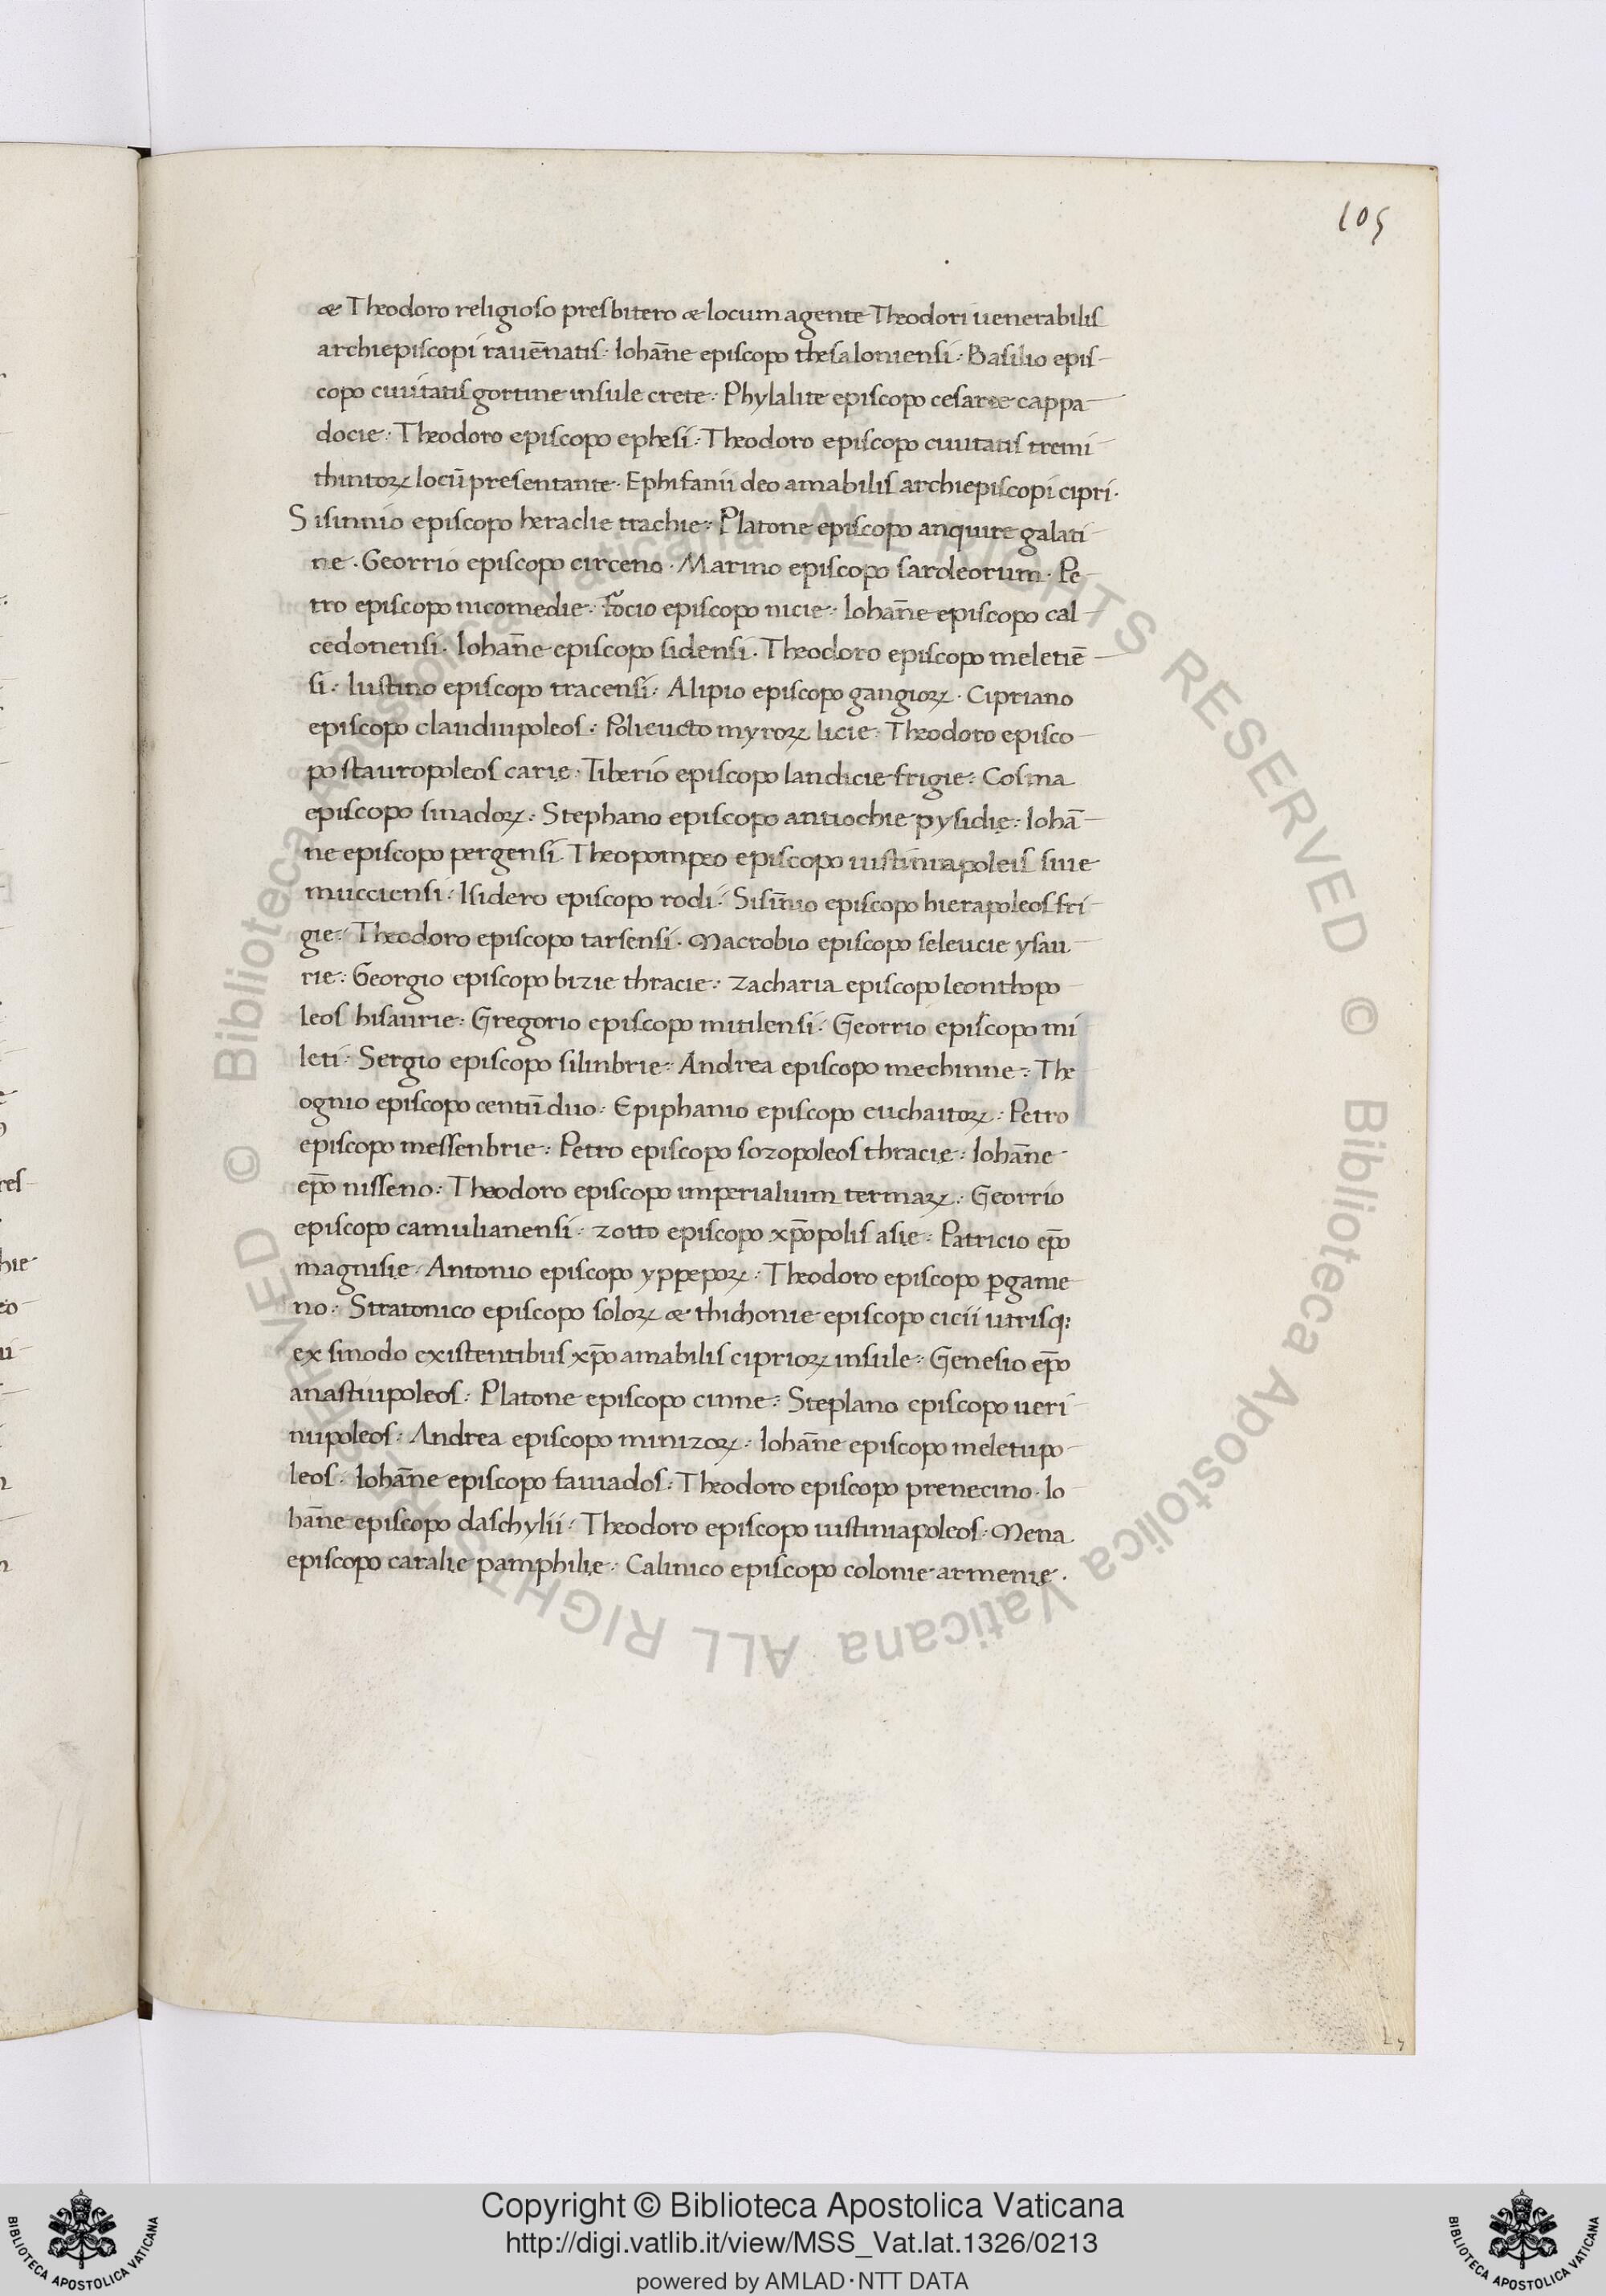 105
& Theodoro religioso presbitero & locum agente Theodori uenerabilis
archiepiscopi rauēnatis. Iohāne episcopo thesaloniensi. Basilio epis-
copo ciuitatis gortine insule crete. Phylalite episcopo cesaree cappa-
docie. Theodoro episcopo ephesi. Theodoro episcopo ciuitatis tremi-
thintoꝝ locū presentante. Ephifanii deo amabilis archiepiscopi cipri.
Sisinnio episcopo heraclie trachie. Platone episcopo anquire galati-
ne. Georrio episcopo circeno. Marino episcopo sardeorum. Pe-
tro episcopo nicomedie. Focio episcopo nicie. Iohāne episcopo cal
cedonensi. Iohāne episcopo sidensi. Theodoro episcopo meletiē-
si. Iustino episcopo tracensi. Alipio episcopo gangioꝝ. Cipriano
episcopo claudiupoleos. Polieucto myroꝝ licie. Theodoro episco-
po stauropoleos carię. Tiberio episcopo landicie frigie. Cosma
episcopo sinadoꝝ. Stephano episcopo antiochie pysidię. Iohā-
ne episcopo pergensi. Theopompeo episcopo iustiniapoleis siue
mucciensi. Isidero episcopo rodi. Sisīnio episcopo hierapoleos fri-
gie. Theodoro episcopo tarsensi. Macrobio episcopo seleucie ysau-
rie. Georgio episcopo bizie thracie. Zacharia episcopo leonthopo-
leos hisaurie. Gregorio episcopo mitilensi. Georrio episcopo mi
leti. Sergio episcopo silinbrie. Andrea episcopo mechinne. The
ognio episcopo centū duo. Epiphanio episcopo euchaitoꝝ. Petro
episcopo messenbrie. Petro episcopo sozopoleos thracię. Iohāne
ep̄o nisseno. Theodoro episcopo imperialium termaꝝ. Georrio
episcopo camulianensi. Zotto episcopo xp̄opolis asię. Patricio ep̄o
magnisię. Antonio episcopo yppepoꝝ. Theodoro episcopo ꝑgame-
no. Stratonico episcopo soloꝝ & thichonie episcopo cicii utrisq;
ex sinodo existentibus xp̄o amabilis ciprioꝝ insule. Genesio ep̄o
anastiupoleos. Platone episcopo cinne. Steplano episcopo ueri-
nupoleos. Andrea episcopo minizoꝝ. Iohāne episcopo meletupo-
leos. Iohāne episcopo fauuados. Theodoro episcopo prenecino. Io
hāne episcopo daschylii. Theodoro episcopo iustiniapoleos. Mena
episcopo caralię pamphilię. Calinico episcopo colonie armenię.
Copyright © Biblioteca Apostolica Vaticana
http://digi.vatlib.it/view/MSS_Vat.lat.1326/0213
powered by AMLAD·NTT DATA